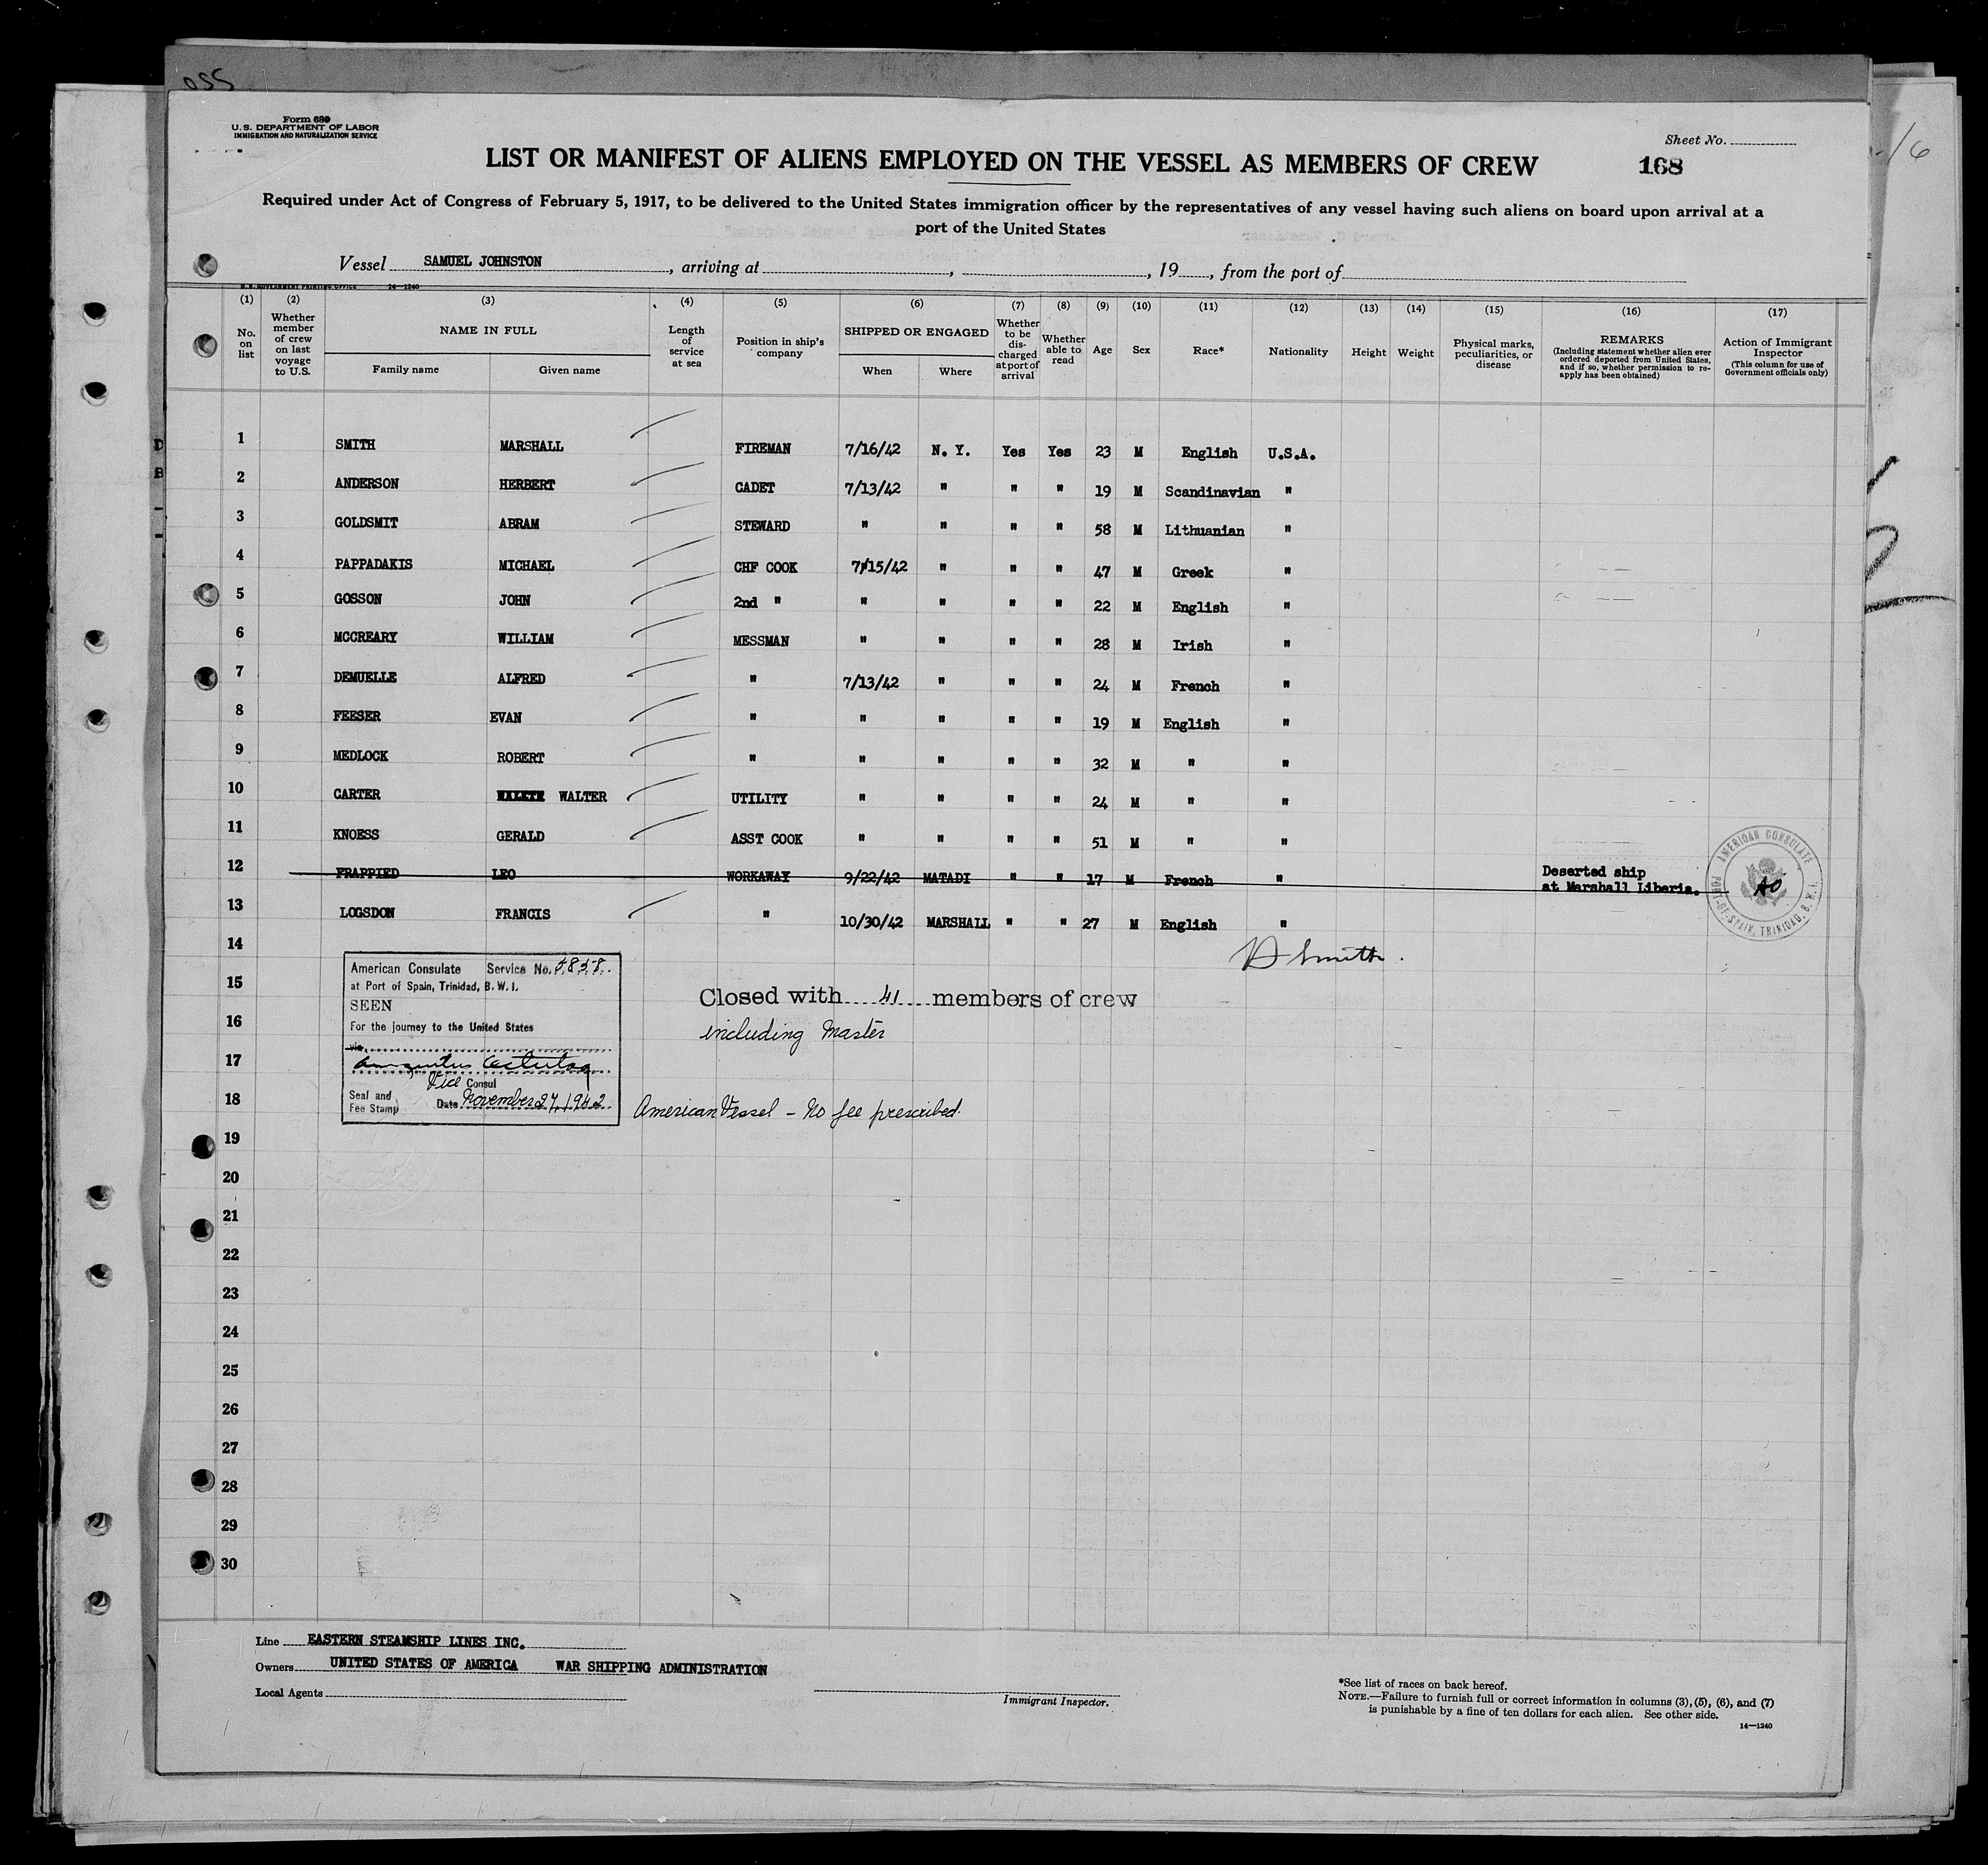 055
Form 680
U. S. DEPARTMENT OF LABOR
IMMIGRATION AND NATURALIZATION SERVICE
Sheet No.
LIST OR MANIFEST OF ALIENS EMPLOYED ON THE VESSEL AS MEMBERS OF CREW
168
16
Required under Act of Congress of February 5, 1917, to be delivered to the United States immigration officer by the representatives of any vessel having such aliens on board upon arrival at a
port of the United States
Vessel SAMUEL JOHNSTON, arriving at , , 19 , from the port of
U.S. GOVERNMENT PRINTING OFFICE 14—1240
(1) (2) (3) (4) (5) (6) (7) (8) (9) (10) (11) (12) (13) (14) (15) (16) (17)
No. on list
Whether member of crew on last voyage to U.S.
NAME IN FULL
Family name Given name
Length of service at sea
Position in ship's company
SHIPPED OR ENGAGED
When Where
Whether to be discharged at port of arrival
Whether able to read
Age
Sex
Race*
Nationality
Height
Weight
Physical marks, peculiarities, or disease
REMARKS
(Including statement whether alien ever ordered deported from United States, and if so, whether permission to reapply has been obtained)
Action of Immigrant Inspector
(This column for use of Government officials only)
1 SMITH MARSHALL FIREMAN 7/16/42 N. Y. Yes Yes 23 M English U.S.A.
2 ANDERSON HERBERT CADET 7/13/42 " " " 19 M Scandinavian "
3 GOLDSMIT ABRAM STEWARD " " " " 58 M Lithuanian "
4 PAPPADAKIS MICHAEL CHF COOK 7/15/42 " " " 47 M Greek "
5 GOSSON JOHN 2nd " " " " " 22 M English "
6 MCCREARY WILLIAM MESSMAN " " " " 28 M Irish "
7 DEMUELLE ALFRED " 7/13/42 " " " 24 M French "
8 FEESER EVAN " " " " " 19 M English "
9 MEDLOCK ROBERT " " " " " 32 M " "
10 CARTER WALTER UTILITY " " " " 24 M " "
11 KNOESS GERALD ASST COOK " " " " 51 M " "
12 FRAPPIED LEO WORKAWAY 9/22/42 MATADI " " 17 M French " Deserted ship
at Marshall Liberia.
AMERICAN CONSULATE
PORT-OF-SPAIN, TRINIDAD, B.W.I.
13 LOGSDON FRANCIS " 10/30/42 MARSHALL " " 27 M English "
14
H Smith.
15
16
17
18
19
20
21
22
23
24
25
26
27
28
29
30
American Consulate Service No. 5858
at Port of Spain, Trinidad, B. W. I.
SEEN
For the journey to the United States
via
Vice Consul
Seal and
Fee Stamp Date November 27, 1942
Closed with 41 members of crew
including Master
American Vessel - No fee prescribed.
Line EASTERN STEAMSHIP LINES INC.
Owners UNITED STATES OF AMERICA WAR SHIPPING ADMINISTRATION
Local Agents
Immigrant Inspector.
*See list of races on back hereof.
NOTE.—Failure to furnish full or correct information in columns (3), (5), (6), and (7)
is punishable by a fine of ten dollars for each alien. See other side.
14—1240